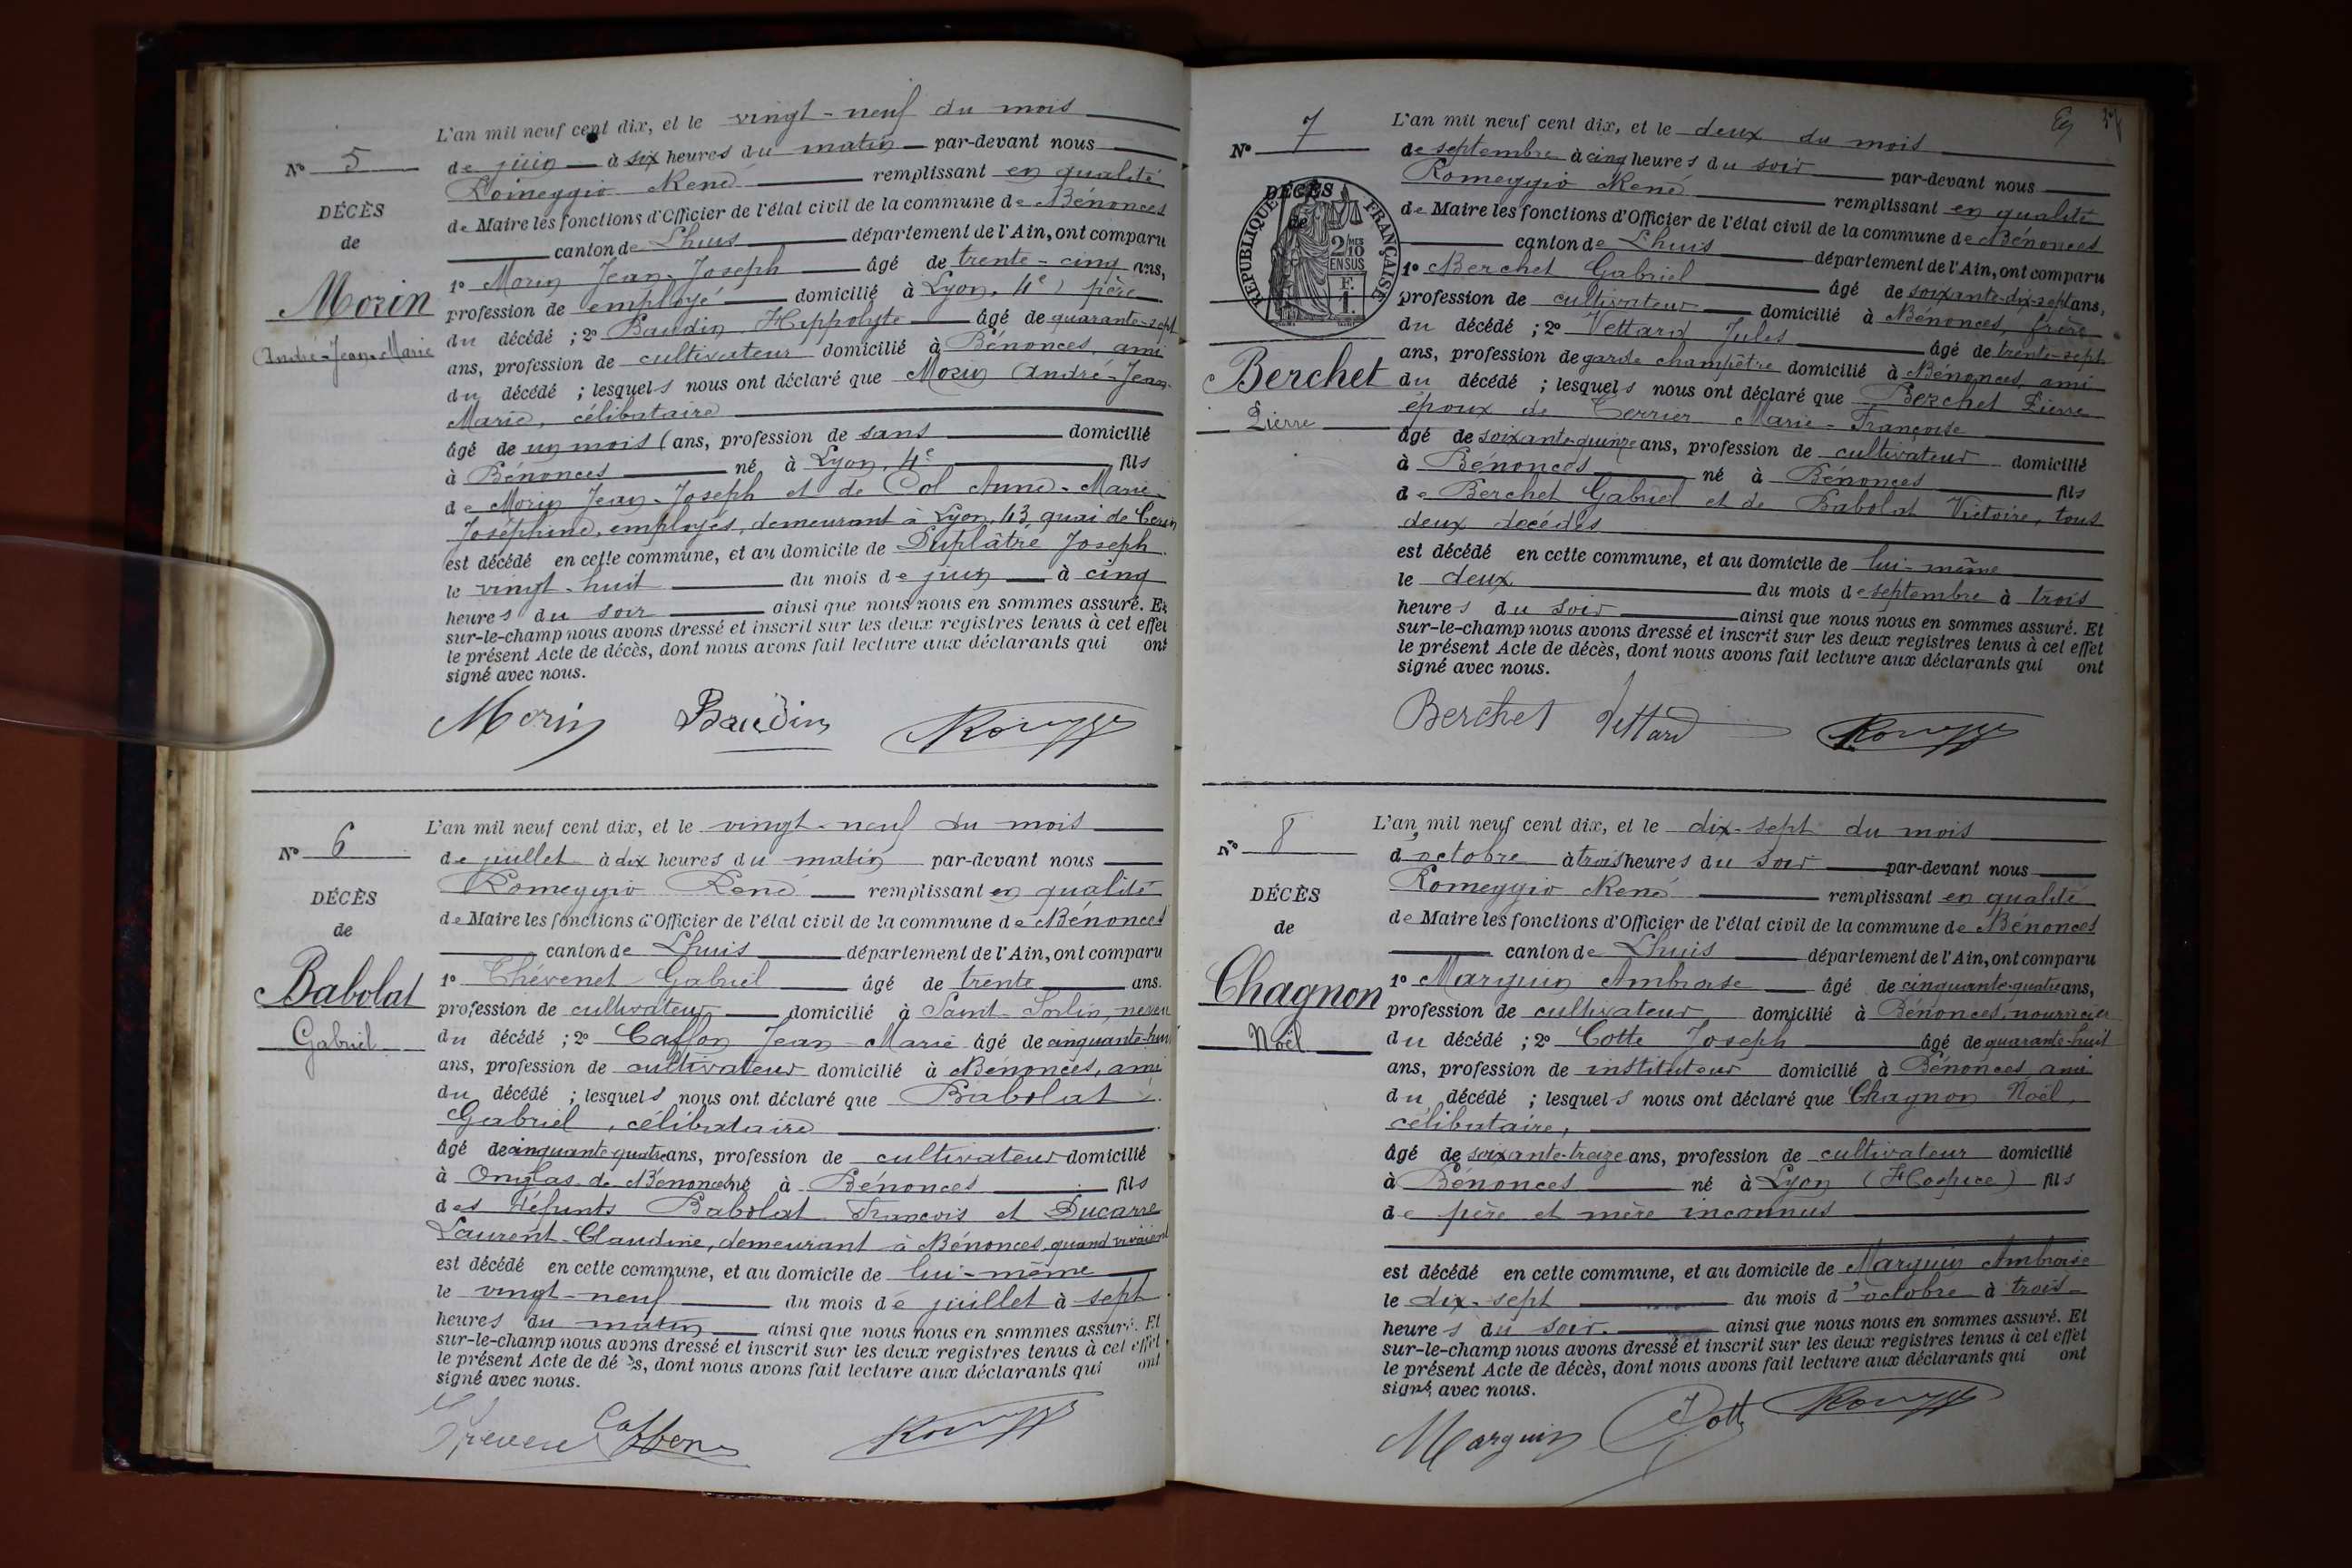 L'an mil neuf cent dix, et le vingt-neuf du mois
N° 5
de juin à six heures du matin par-devant nous
Romeggio René remplissant en qualité
DÉCÈS
de Maire les fonctions d'Officier de l'état civil de la commune de Bénonces
de
canton de Lhuis département de l'Ain, ont comparu
1° Morin Jean-Joseph âgé de trente-cinq ans,
Morin
profession de employé domicilié à Lyon, 4e, père
André-Jean-Marie
du décédé ; 2° Baudin Hippolyte âgé de quarante-sept
ans, profession de cultivateur domicilié à Bénonces, ami
du décédé ; lesquels nous ont déclaré que Morin André-Jean-
Marie, célibataire
âgé de un mois (ans, profession de sans domicilié
à Bénonces né à Lyon, 4e fils
de Morin Jean-Joseph et de Col Anne-Marie-
Joséphine, employés, demeurant à Lyon, 43, quai de
est décédé en cette commune, et au domicile de Duplâtre Joseph
le vingt-huit du mois de juin à cinq
heures du soir ainsi que nous nous en sommes assuré. Et
sur-le-champ nous avons dressé et inscrit sur les deux registres tenus à cet effet
le présent Acte de décès, dont nous avons fait lecture aux déclarants qui ont
signé avec nous.
Morin Baudin
L'an mil neuf cent dix, et le vingt-neuf du mois
N° 6
de juillet à dix heures du matin par-devant nous
Romeggio René remplissant en qualité
DÉCÈS
de Maire les fonctions d'Officier de l'état civil de la commune de Bénonces
de
canton de Lhuis département de l'Ain, ont comparu
Babolat
1° Thévenet Gabriel âgé de trente ans.
profession de cultivateur domicilié à Saint-Sorlin, neveu
Gabriel
du décédé ; 2° Caffon Jean-Marie âgé de cinquante-huit
ans, profession de cultivateur domicilié à Bénonces, ami
du décédé ; lesquels nous ont déclaré que Babolat
Gabriel, célibataire
âgé de cinquante-quatre ans, profession de cultivateur domicilié
à Onglas de Bénonces né à Bénonces fils
des défunts Babolat François et Ducarre
Laurent-Claudine, demeurant à Bénonces, quand vivaient
est décédé en cette commune, et au domicile de lui-même
le vingt-neuf du mois de juillet à sept
heures du matin ainsi que nous nous en sommes assuré. Et
sur-le-champ nous avons dressé et inscrit sur les deux registres tenus à cet effet
le présent Acte de décès, dont nous avons fait lecture aux déclarants qui ont
signé avec nous.
L'an mil neuf cent dix, et le deux du mois
N° 7
de septembre à cinq heures du soir par-devant nous
Romeggio René remplissant en qualité
DÉCÈS
de
de Maire les fonctions d'Officier de l'état civil de la commune de Bénonces
RÉPUBLIQUE FRANÇAISE
2/10 MES
EN SUS
F.
1.
canton de Lhuis département de l'Ain, ont comparu
1° Berchet Gabriel âgé de soixante-dix-sept ans,
profession de cultivateur domicilié à Bénonces, frère
du décédé ; 2° Vettard Jules âgé de trente-sept
Berchet
Pierre
ans, profession de garde champêtre domicilié à Bénonces, ami
du décédé ; lesquels nous ont déclaré que Berchet Pierre
époux de Terrier Marie-Françoise
âgé de soixante-quinze ans, profession de cultivateur domicilié
à Bénonces né à Bénonces fils
de Berchet Gabriel et de Babolat Victoire, tous
deux décédés
est décédé en cette commune, et au domicile de lui-même
le deux du mois de septembre à trois
heures du soir ainsi que nous nous en sommes assuré. Et
sur-le-champ nous avons dressé et inscrit sur les deux registres tenus à cet effet
le présent Acte de décès, dont nous avons fait lecture aux déclarants qui ont
signé avec nous.
Berchet Vettard
L'an mil neuf cent dix, et le dix-sept du mois
N° 8
d'octobre à trois heures du soir par-devant nous
Romeggio René remplissant en qualité
DÉCÈS
de Maire les fonctions d'Officier de l'état civil de la commune de Bénonces
de
canton de Lhuis département de l'Ain, ont comparu
Chagnon
1° Marguin Ambroise âgé de cinquante-quatre ans,
profession de cultivateur domicilié à Bénonces, nourricier
Noël
du décédé ; 2° Cotte Joseph âgé de quarante-huit
ans, profession de instituteur domicilié à Bénonces, ami
du décédé ; lesquels nous ont déclaré que Chagnon Noël,
célibataire,
âgé de soixante-treize ans, profession de cultivateur domicilié
à Bénonces né à Lyon (Hospice) fils
de père et mère inconnus
est décédé en cette commune, et au domicile de Marguin Ambroise
le dix-sept du mois d'octobre à trois
heures du soir. ainsi que nous nous en sommes assuré. Et
sur-le-champ nous avons dressé et inscrit sur les deux registres tenus à cet effet
le présent Acte de décès, dont nous avons fait lecture aux déclarants qui ont
signé avec nous.
Marguin J Cotte